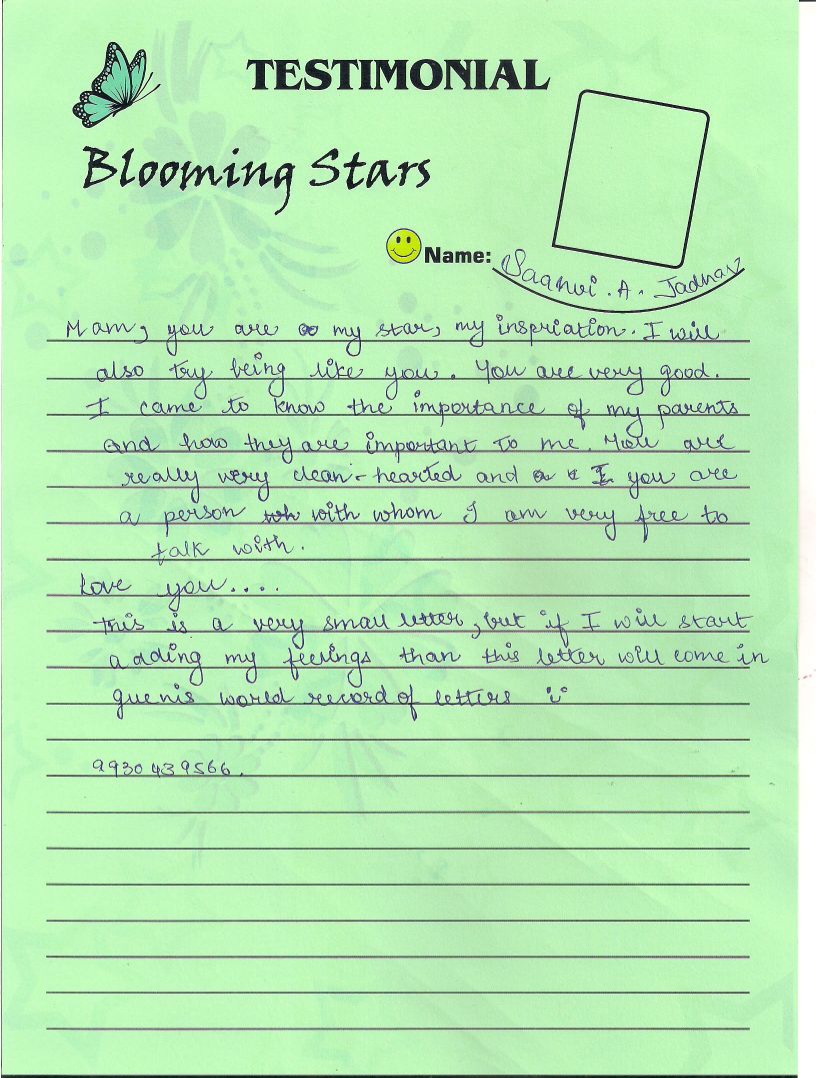 TESTIMONIAL
Blooming Stars
Name: Saanvi . A . Jadhav
Mam, you are my star, my inspriation. I will
also try being like you. You are very good.
I came to know the importance of my parents
and how they are important to me. You are
really very clean-hearted and I you are
a person with whom I am very free to
talk with.
Love you....
This is a very small letter, but if I will start
adding my feelings than this letter will come in
guenis world record of letters
9930439566.